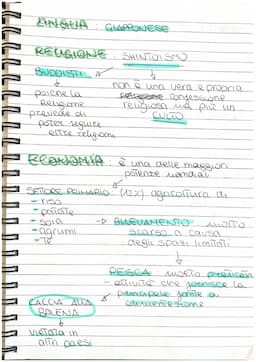 LINGUA: GIAPPONESE
RELIGIONE: SHINTOISMO
BUDDISTI
non è una vera e propria
confessione
religiosa ma più un
CULTO
poiché la
religione
prevede di
poter seguire
altre religioni
ECONOMIA è una delle maggiori
potenze mondiali
SETTORE PRIMARIO: (12%) agricoltura di
- riso
- patate
- soia -> ALLEVAMENTO molto
- agrumi scarso a causa
- tè degli spazi limitati
PESCA molto praticata
- attività che fornisce la
principale fonte di
alimentazione
CACCIA ALLA
BALENA
vietata in
altri paesi